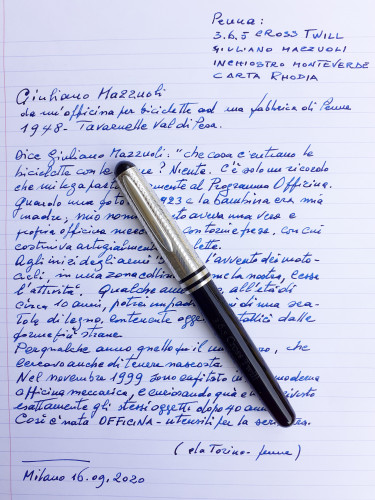 Penna:
3.6.5 CROSS TWILL
GIULIANO MAZZUOLI
INCHIOSTRO MONTEVERDE
CARTA RHODIA
Giuliano Mazzuoli
da un'officina per biciclette ad una fabbrica di Penne
1948 - Tavarnelle Val di Pesa.
Dice Giuliano Mazzuoli: "che cosa c'entrano le
biciclette con le ? Niente. C'è solo un ricordo
che mi lega part mente al Programma Officina.
Guardo una foto 1923 e la bambina era mia
madre, mio nonno aveva una vera e
propria officina mecc con torni e frese, con cui
costruiva artigianalmente lette.
Agli inizi degli anni l'avvento dei moto-
cicli, in una zona collin me la nostra, cessò
l'attività. Qualche anno all'età di
circa 10 anni, potrei di una sca-
tola di legno, contenente ogge tallici dalle
forme più strane
Per qualche anno quello fu il m o, che
cercavo anche di tenere nascosto.
Nel novembre 1999 sono capitato in moderna
officina meccanica, e curiosando qua e visto
esattamente gli stessi oggetti dopo 40 ann
Così è nata OFFICINA - utensili per la scri
(da Torino-penne)
Milano 16.09.2020